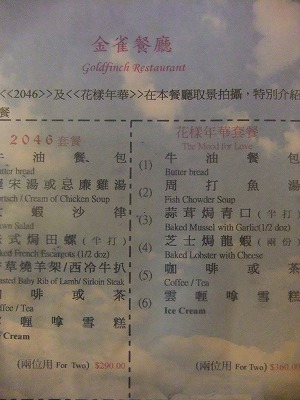 金雀餐廳
Goldfinch Restaurant
<<2046>>及<<花樣年華>>在本餐廳取景拍攝,特別介紹
餐
2046套餐
牛油餐包
Butter bread
宋湯或忌廉雞湯
Cream of Chicken Soup
蝦沙律
Salad
式焗田螺(半打)
Baked French Escargots (1/2 doz)
草燒羊架/西冷牛扒
Roasted Baby Rib of Lamb/ Sirloin Steak
啡或茶
Coffee / Tea
喱嗱雪糕
Ice Cream
(兩位用 For Two) $290.00
花樣年華套餐
The Mood for Love
(1) 牛油餐包
Butter bread
(2) 周打魚湯
Fish Chowder Soup
(3) 蒜茸焗青口(半打)
Baked Mussel with Garlic(1/2 doz)
(4) 芝士焗龍蝦(兩份)
Baked Lobster with Cheese
(5) 咖啡或茶
Coffee / Tea
(6) 雲喱嗱雪糕
Ice Cream
(兩位用 For Two) $360.00